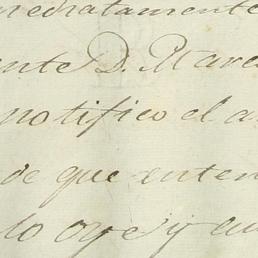 mediatamente
ente D. Marc
notifico el a
de que enten
lo oye y au